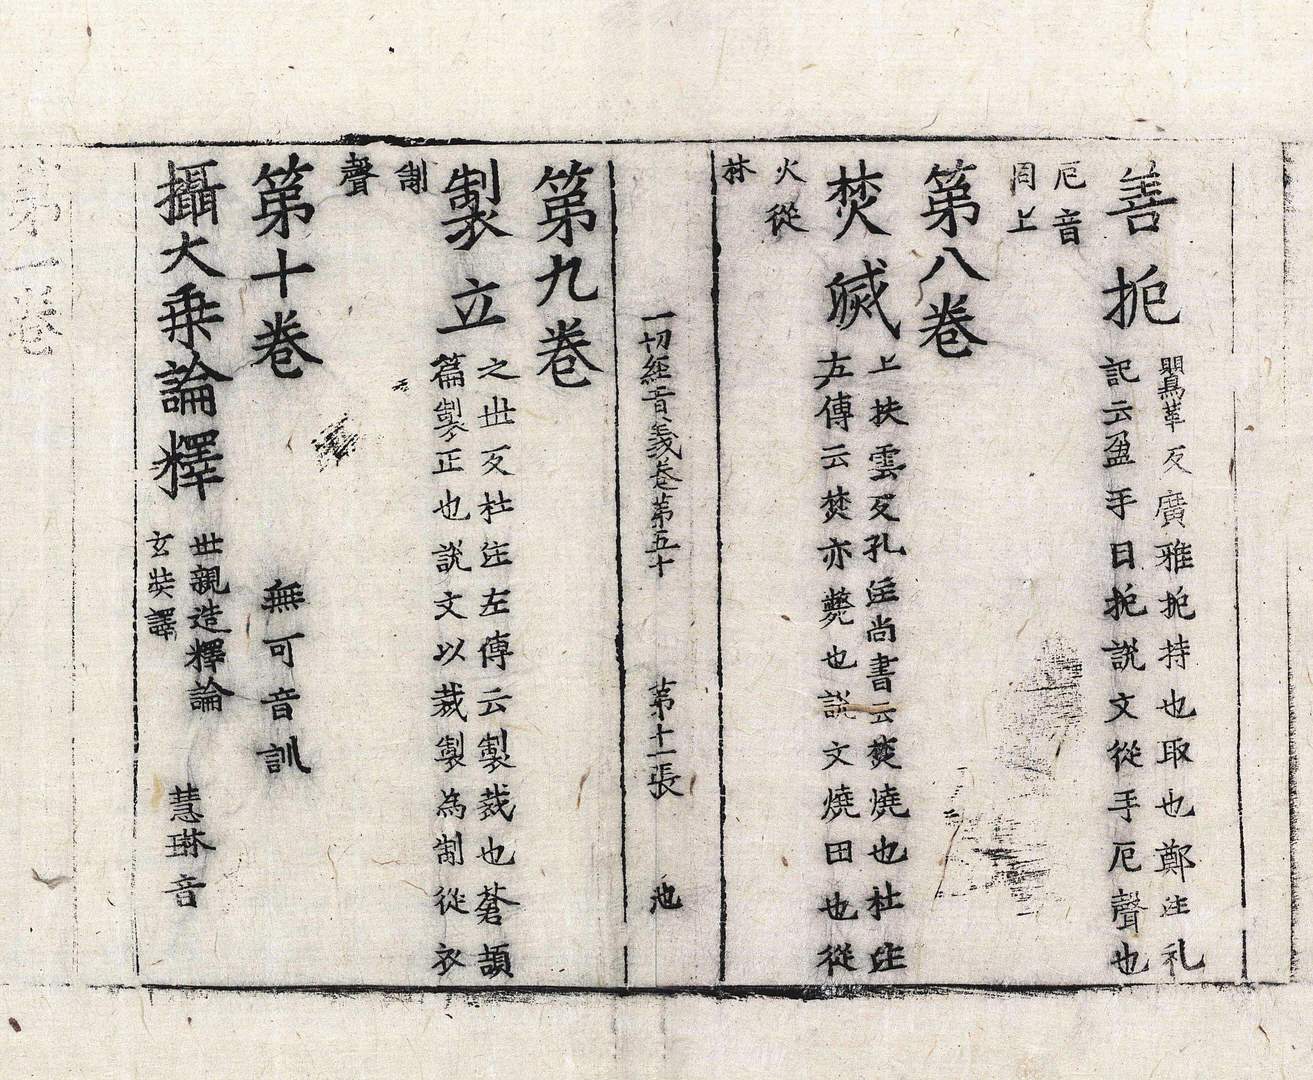 善扼
鸎革反廣雅扼持也取也鄭注礼
記云盈手曰扼説文從手厄聲也
厄音
同上
第八卷
焚滅
上扶雲反孔注尚書云焚燒也杜注
左傳云焚亦斃也説文燒田也從
火從
林
一切經音義卷第五十 第十一張 池
第九卷
製立
之丗反杜注左傳云製裁也蒼頡
篇製正也説文以裁製為制從衣
制
聲
第十卷 無可音訓
攝大乗論釋
丗親造釋論
玄奘譯
慧琳音
第一卷